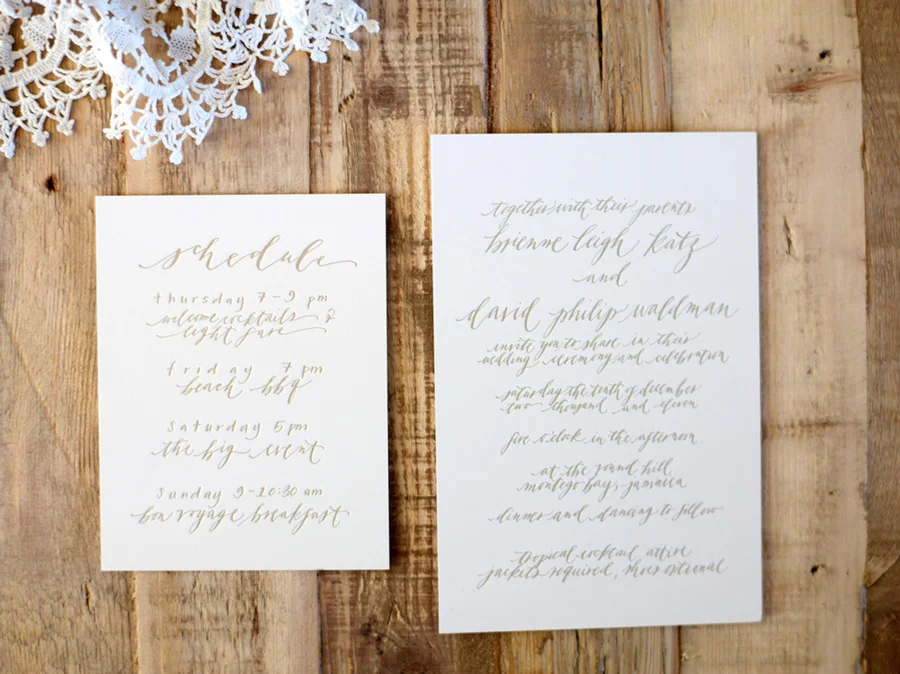 schedule
thursday 7-9 pm
welcome cocktails &
light fare
friday 7pm
beach bbq
saturday 5pm
the big event
sunday 9-10:30 am
bon voyage breakfast
together with their parents
brienne leigh katz
and
david philip waldman
invite you to share in their
wedding ceremony and celebration
saturday the tenth of december
two thousand and eleven
five o'clock in the afternoon
at the round hill
montego bay, jamaica
dinner and dancing to follow
tropical cocktail attire
jackets required, shoes optional